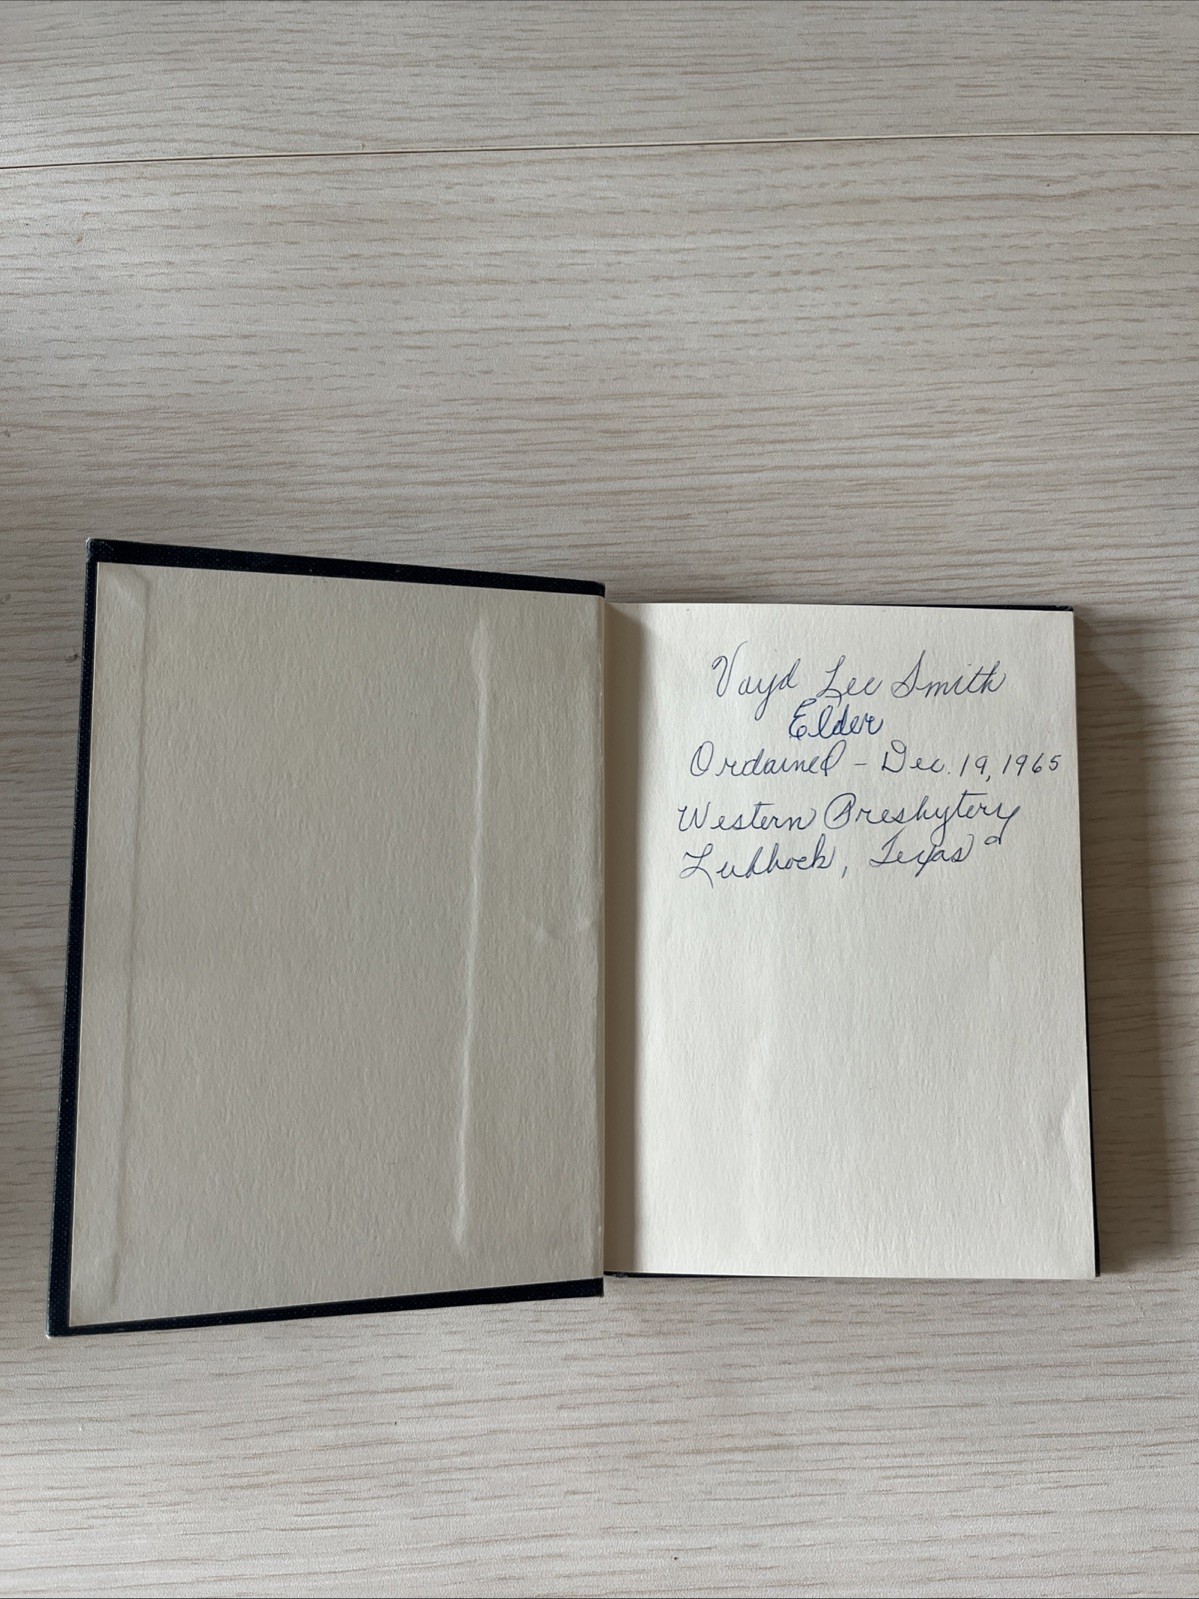 Voyd Lee Smith
Elder
Ordained - Dec. 19, 1965
Western Presbytery
Lubbock, Texas